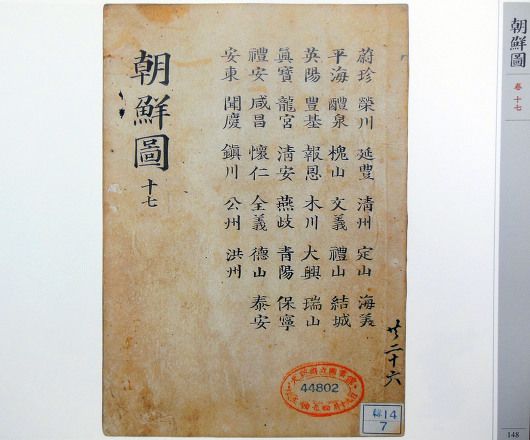 朝鮮圖 卷十七
蔚珍 榮川 延豊 清州 定山 海美
平海 醴泉 槐山 文義 禮山 結城
英陽 豊基 報恩 木川 大興 瑞山
眞寶 龍宮 清安 燕歧 青陽 保寧
禮安 咸昌 懷仁 全義 德山 泰安
安東 聞慶 鎭川 公州 洪州
朝鮮圖 十七
二十六
大阪府立圖書館
44802
韓14
7
148